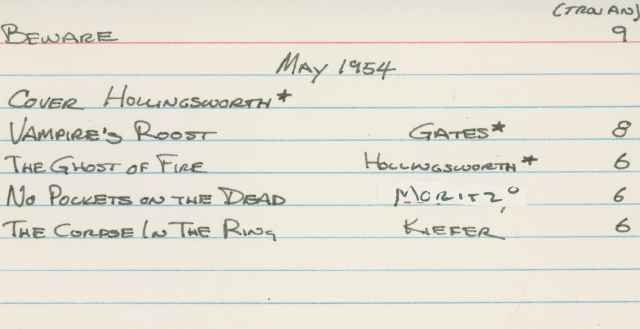 (TROJAN)
BEWARE 9
MAY 1954
COVER HOLLINGSWORTH*
VAMPIRE'S ROOST GATES* 8
THE GHOST OF FIRE HOLLINGSWORTH* 6
NO POCKETS ON THE DEAD MORITZ° 6
THE CORPSE IN THE RING KIEFER 6